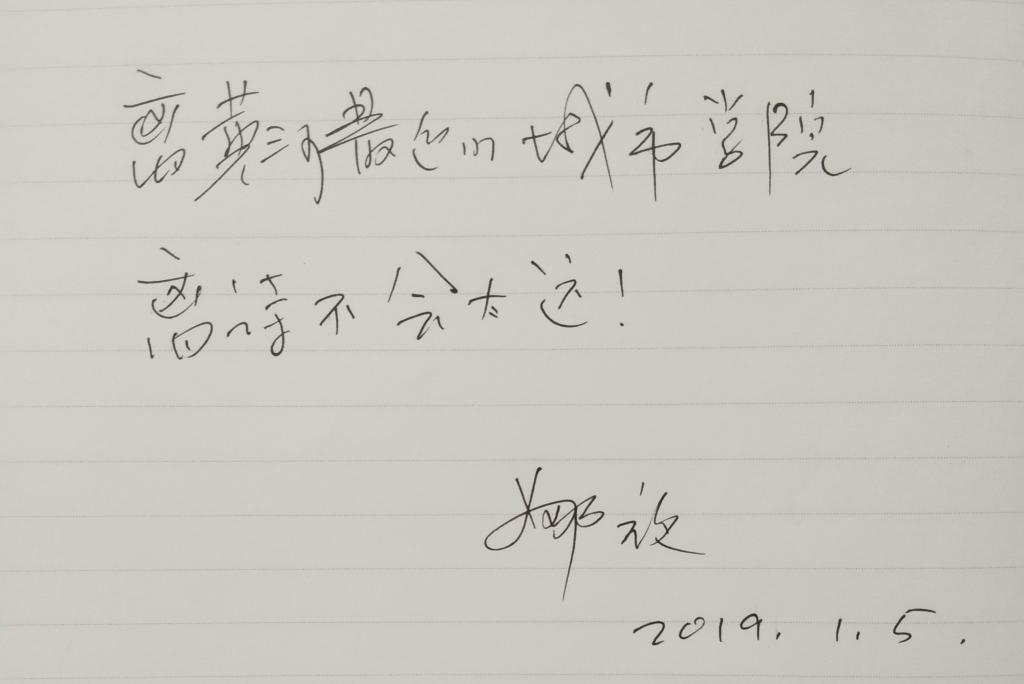 离黄河最近的城市学院
离诗不会太远!
娜夜
2019.1.5.